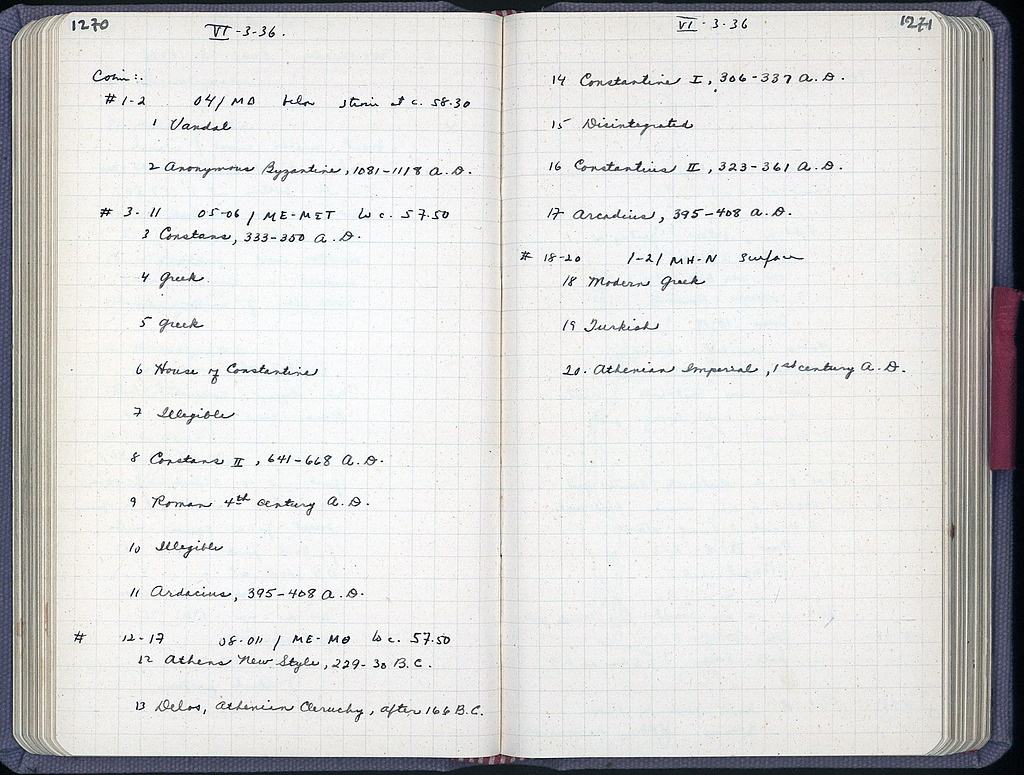 1270
VI-3-36.
Coins:
#1-2 04/MD below strosis at c. 58.30
1 Vandal
2 Anonymous Byzantine, 1081-1118 A.D.
# 3-11 05-06/ME-MET to c. 57.50
3 Constans, 333-350 A.D.
4 Greek
5 Greek
6 House of Constantine
7 Illegible
8 Constans II, 641-668 A.D.
9 Roman 4th century A.D.
10 Illegible
11 Ardacius, 395-408 A.D.
# 12-17 08-011/ME-MΘ to c. 57.50
12 Athens New Style, 229-30 B.C.
13 Delos, Athenian Cleruchy, after 166 B.C.
VI-3-36
1271
14 Constantine I, 306-337 A.D.
15 Disintegrated
16 Constantius II, 323-361 A.D.
17 Arcadius, 395-408 A.D.
# 18-20 1-2/MH-N surface
18 Modern Greek
19 Turkish
20. Athenian Imperial, 1st century A.D.